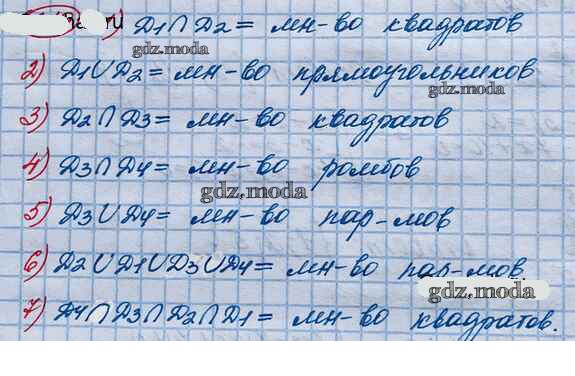 1) D1∩D2 = мн-во квадратов
gdz.moda
2) D1∪D2 = мн-во прямоугольников
gdz.moda
3) D2∩D3 = мн-во квадратов
4) D3∩D4 = мн-во ромбов
gdz.moda
5) D3∪D4 = мн-во пар-мов
6) D2∪D1∪D3∪D4 = мн-во пар-мов.
gdz.moda
7) D4∩D3∩D2∩D1 = мн-во квадратов.